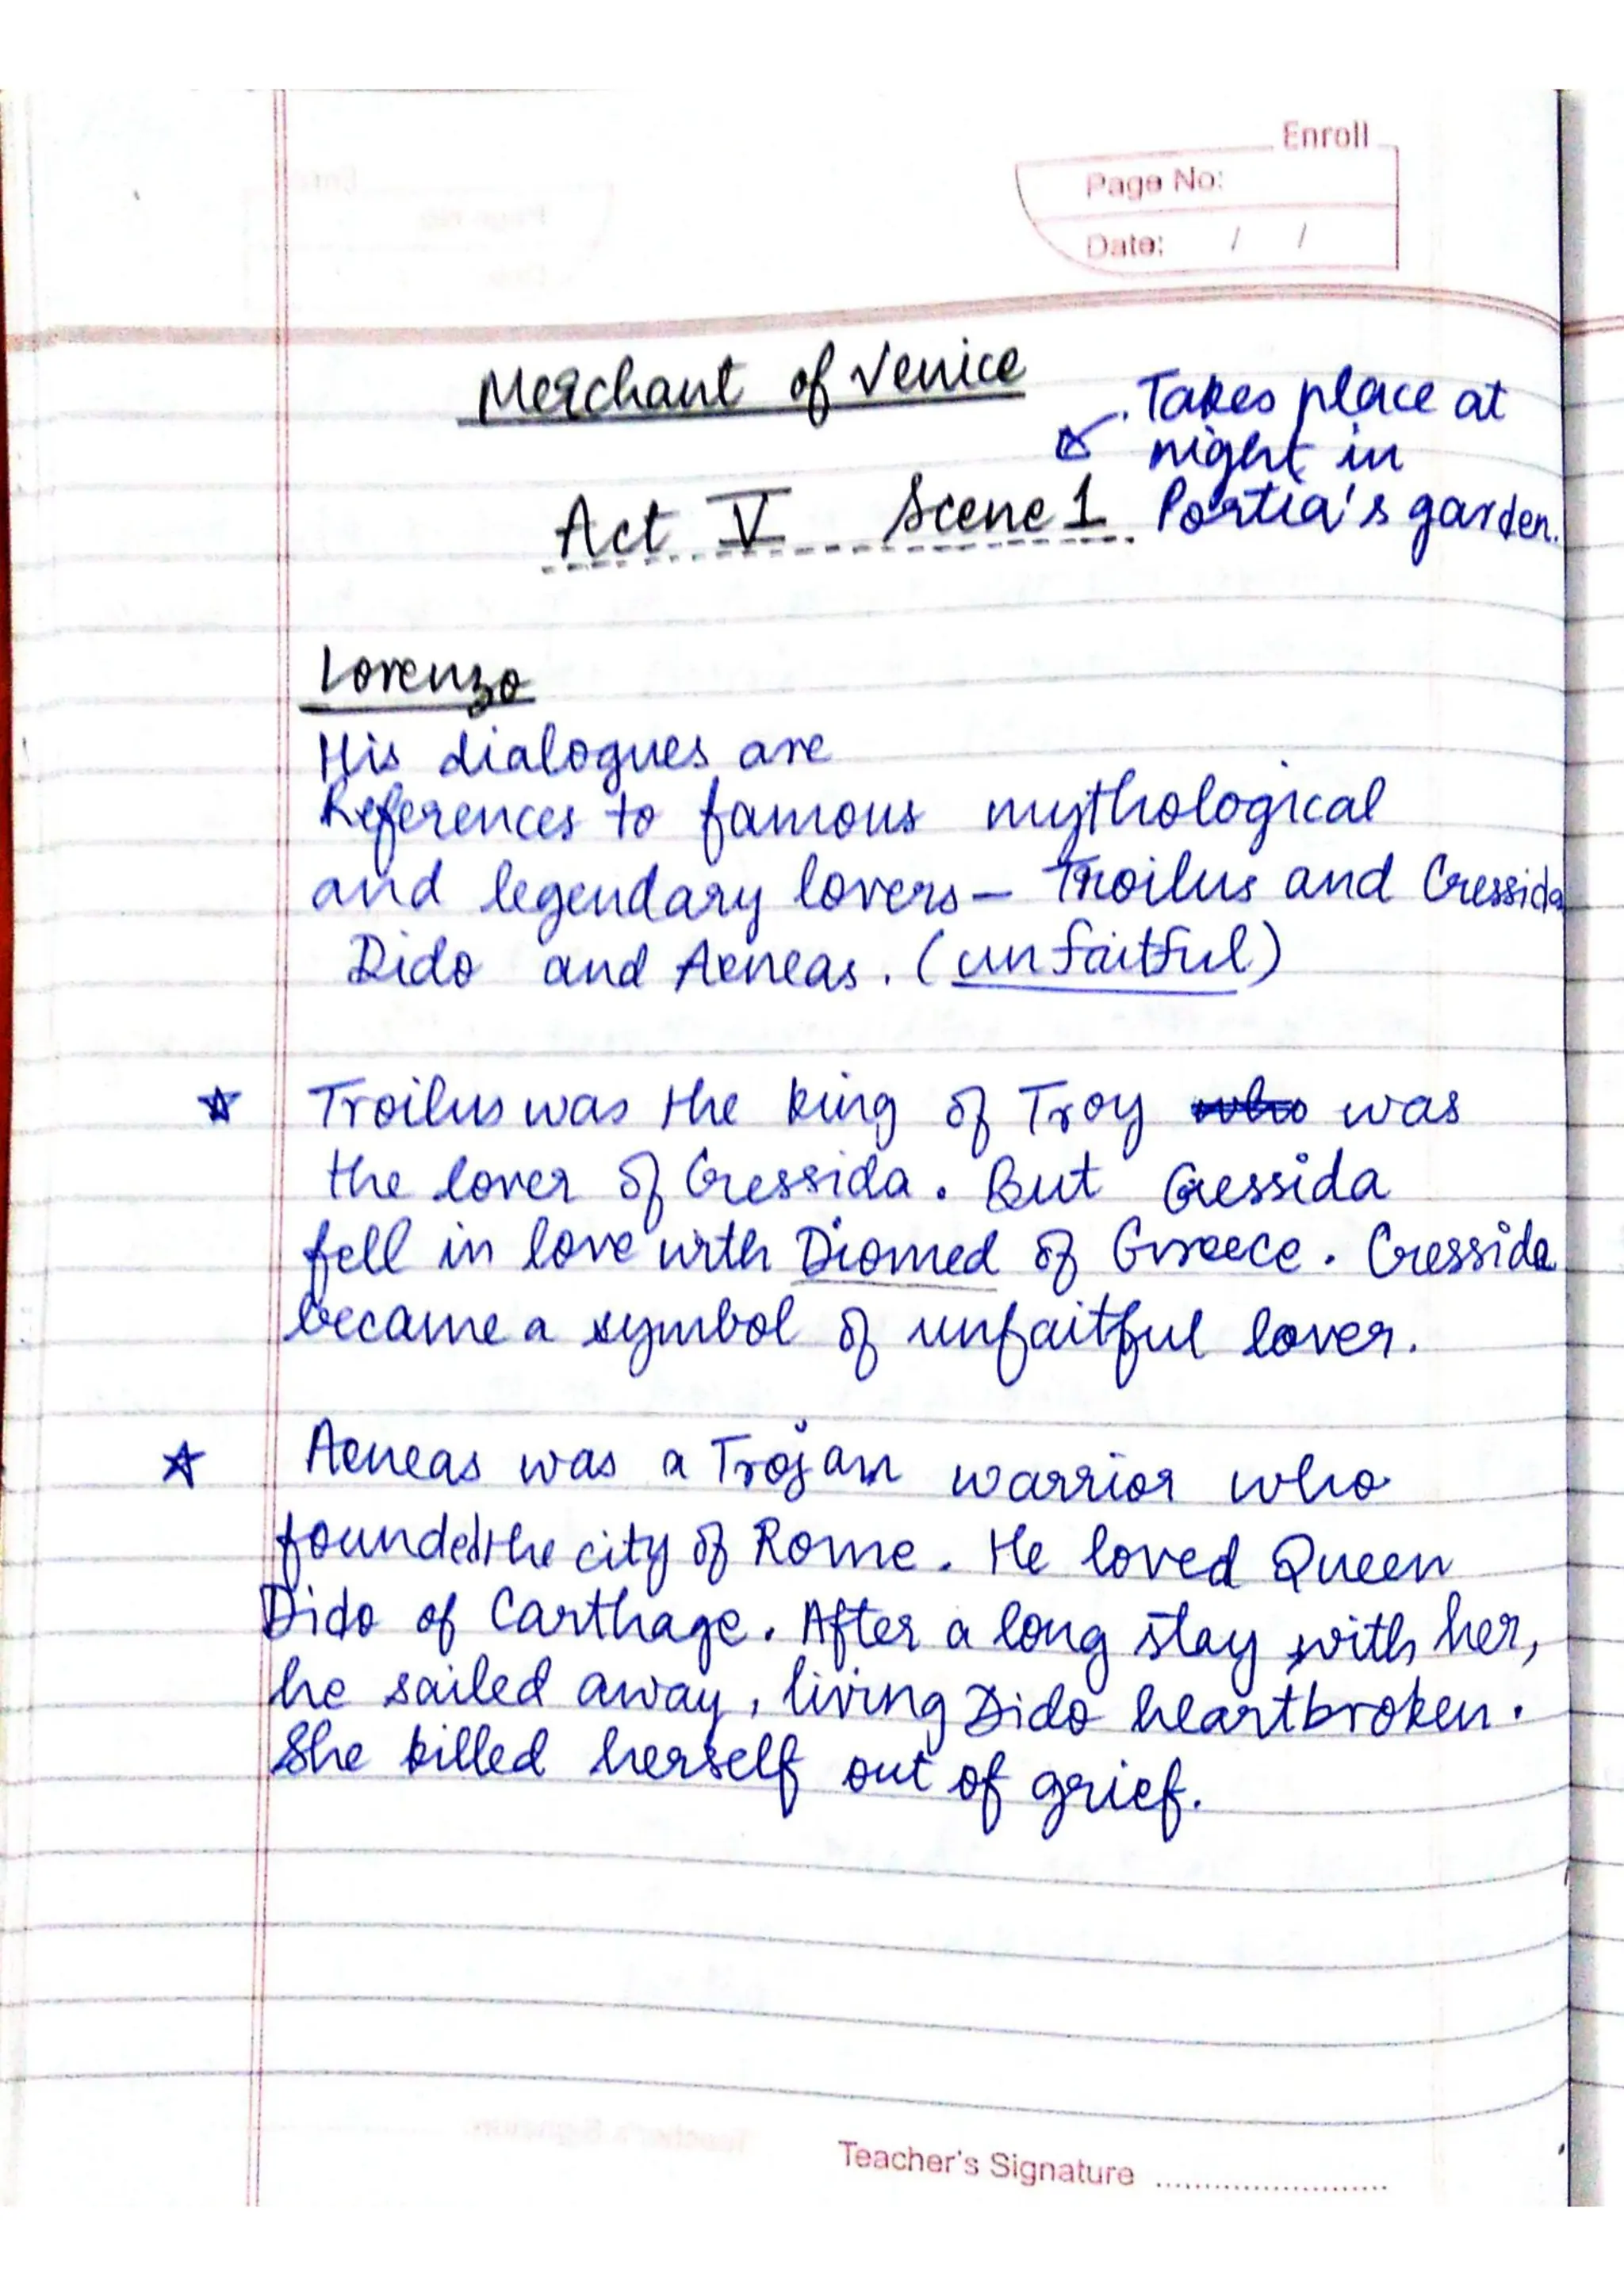 Enroll
Page No:
Date: / /
Merchant of Venice
Takes place at
night in
Portia's garden.
Act V Scene 1
Lorenzo
His dialogues are
References to famous mythological
and legendary lovers — Troilus and Cressida
Dido and Aeneas. (unfaitful)
☆ Troilus was the king of Troy who was
the lover of Cressida. But Cressida
fell in love with Diomed of Greece. Cressida
became a symbol of unfaitful lover.
☆ Aeneas was a Trojan warrior who
founded the city of Rome. He loved Queen
Dido of Carthage. After a long stay with her,
he sailed away, living Dido heartbroken.
She killed herself out of grief.
Teacher's Signature ........................